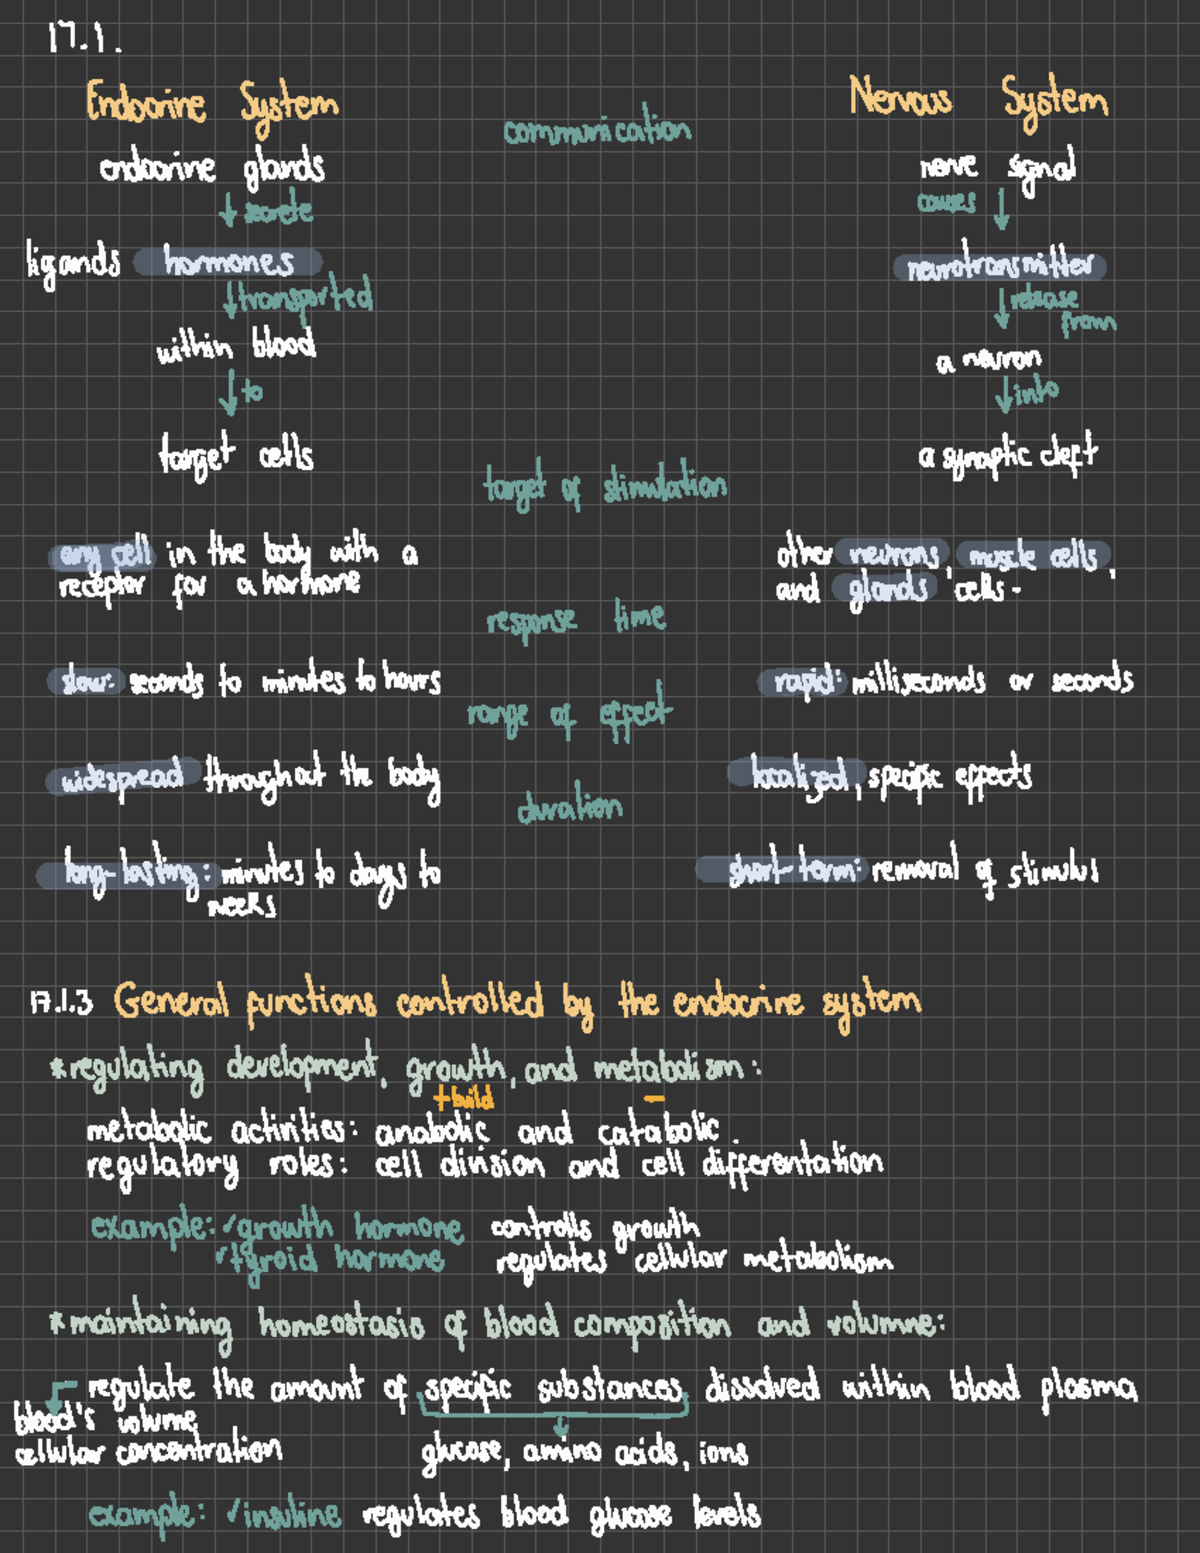 17.1.
Endocrine System
Nervous System
communication
endocrine glands
↓ secrete
ligands hormones
↓ transported
within blood
↓ to
target cells
nerve signal
causes ↓
neurotransmitter
↓ release
from
a neuron
↓ into
a synaptic cleft
target of stimulation
any cell in the body with a
receptor for a hormone
other neurons, muscle cells,
and glands cells.
response time
slow: seconds to minutes to hours
rapid: milliseconds or seconds
range of effect
widespread throughout the body
localized, specific effects
duration
long-lasting: minutes to days to
weeks
short-term: removal of stimulus
17.1.3 General functions controlled by the endocrine system
*regulating development, growth, and metabolism:
+build -
metabolic activities: anabolic and catabolic.
regulatory roles: cell division and cell differentation
example: ✓growth hormone controlls growth
✓thyroid hormone regulates cellular metabolism
*maintaining homeostasis of blood composition and volumne:
regulate the amount of specific substances dissolved within blood plasma
blood's volume
cellular concentration
glucose, amino acids, ions
example: ✓insuline regulates blood glucose levels